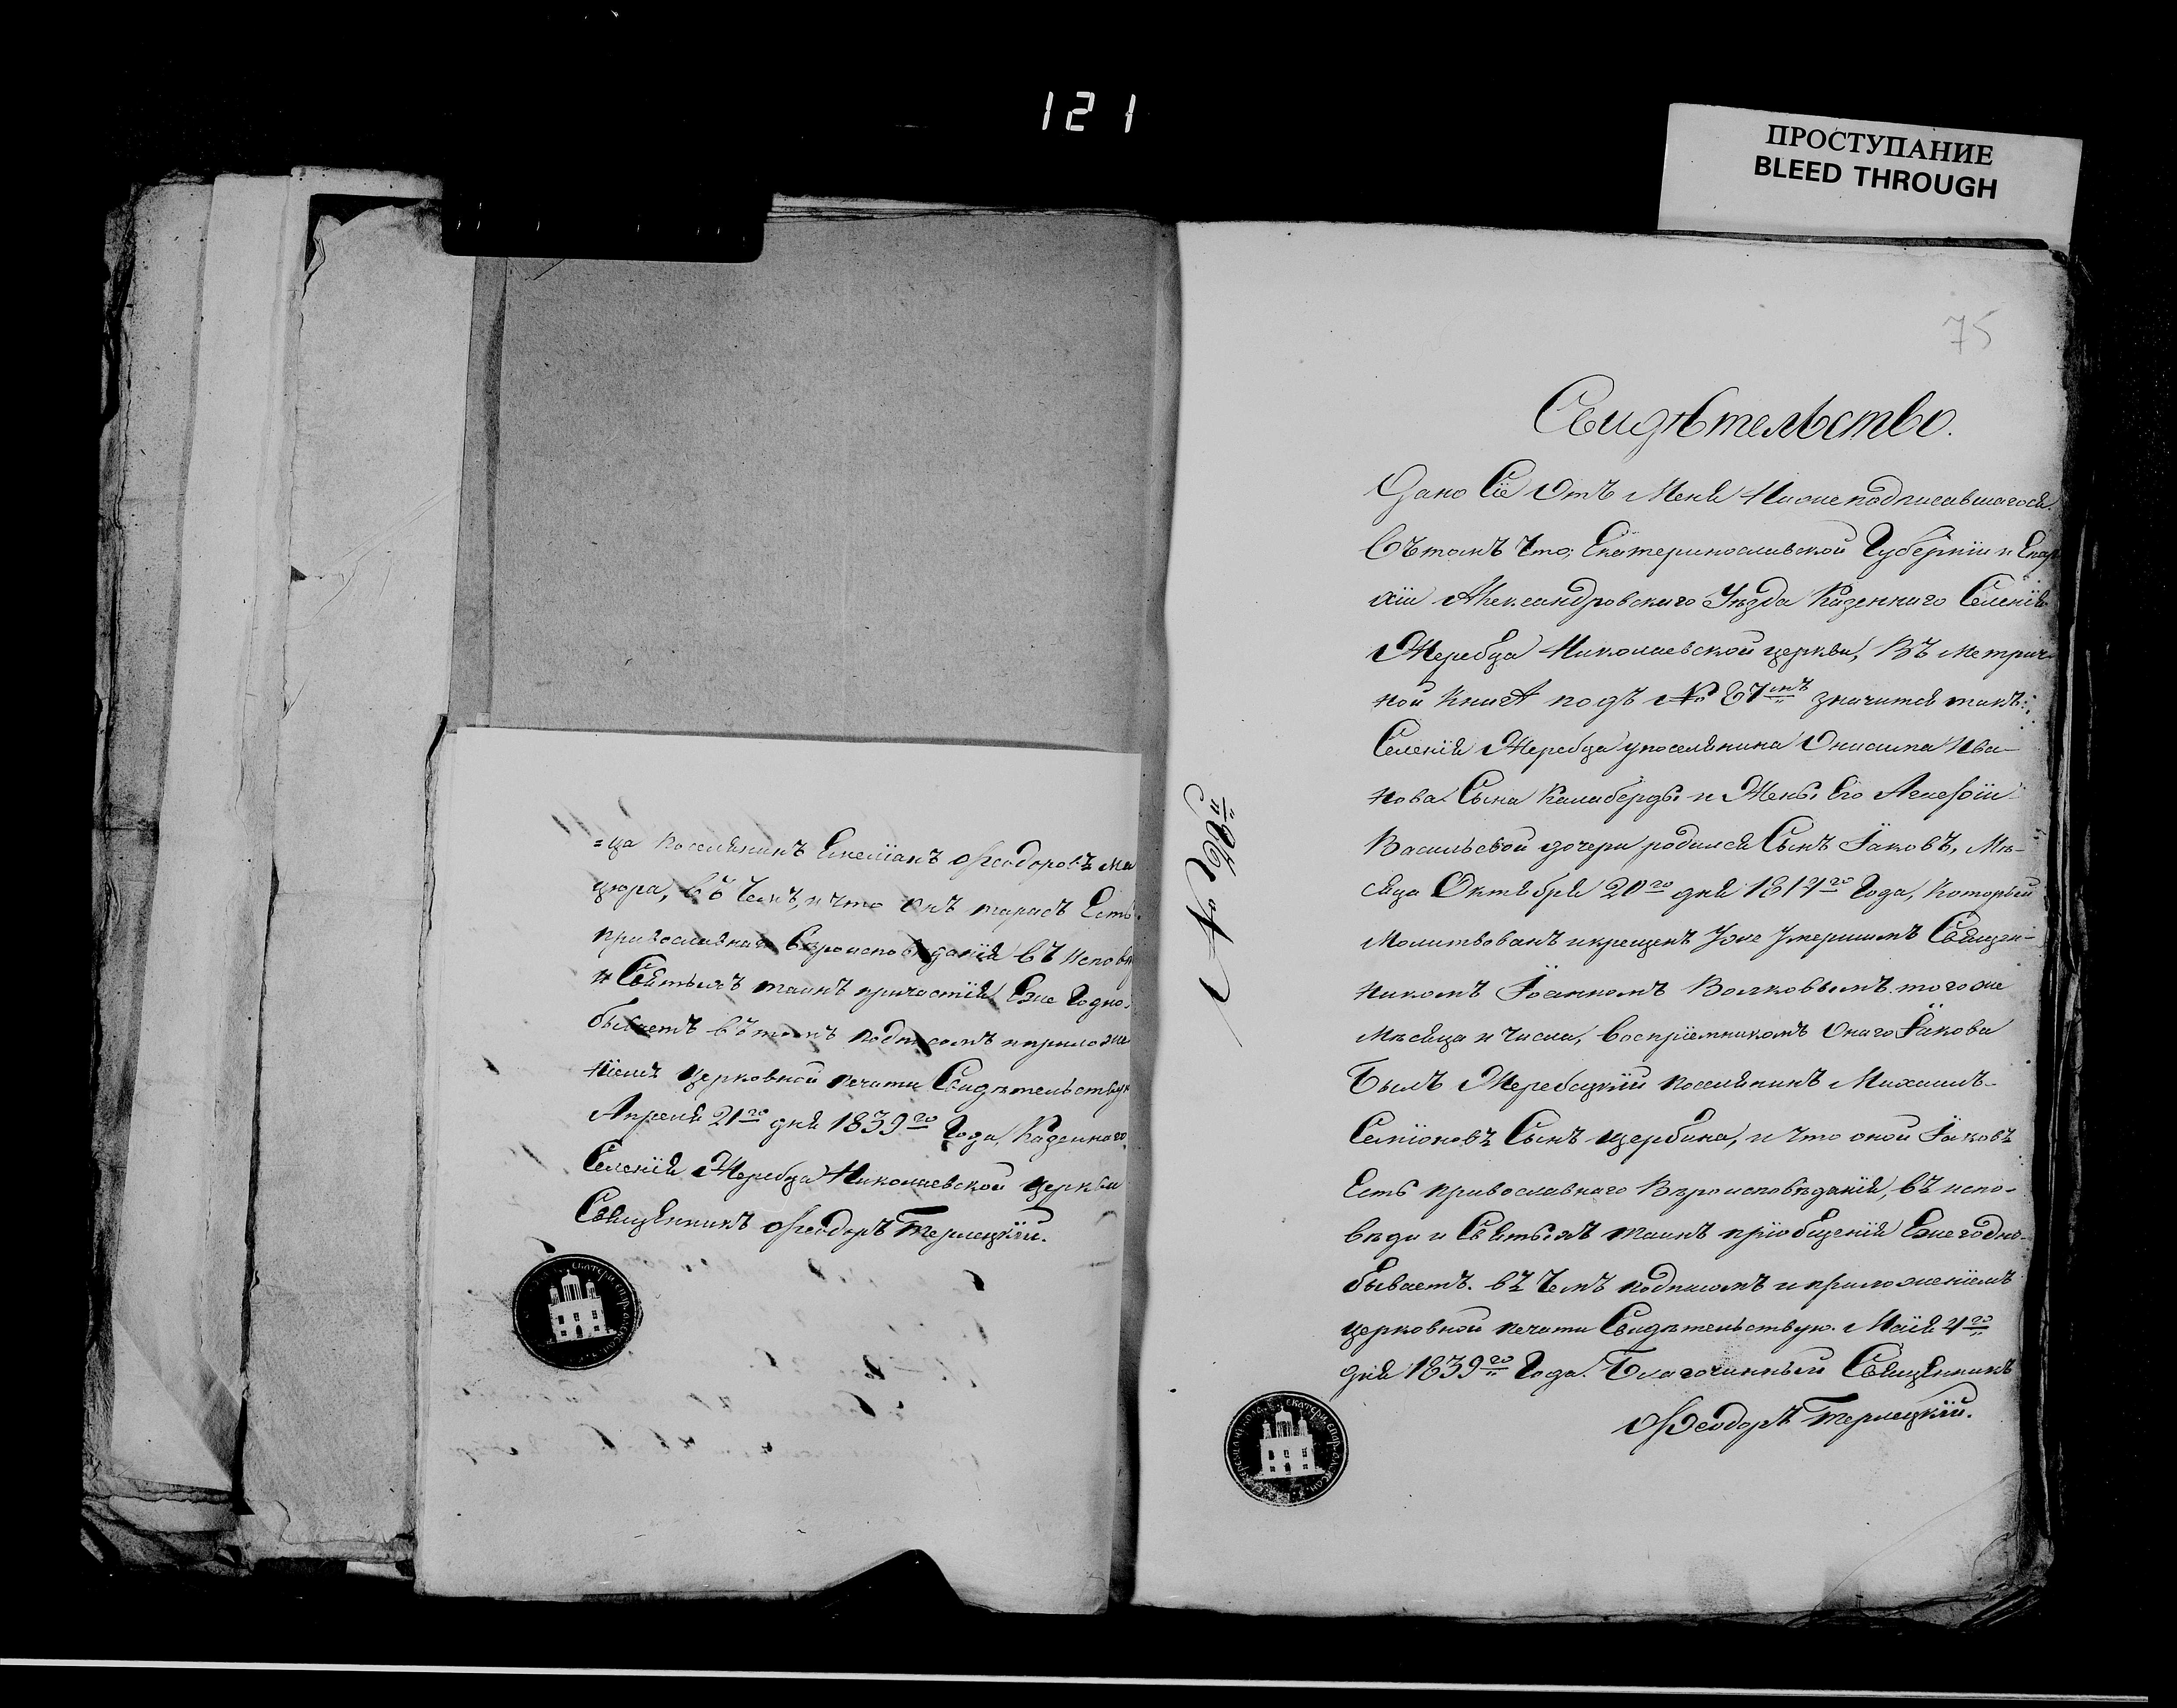 121
ПРОСТУПАНИЕ
BLEED THROUGH
=ца поселянинъ Емеліанъ Ѳеодоровъ Ма
цюра, въ чемъ, и что онъ тарасъ Есть
православнаго Вѣроисповѣданія въ исповѣ
и Святыхъ таинъ причастія Ежегодно
бываетъ въ томъ подписомъ и приложе
ніемъ церковной печати Свидѣтельствую
Апреля 21го дня 1839го Года, Казеннаго
Селенія Жеребца Николаевской церкви
Священникъ Ѳеодоръ Терлецкій.
75
Свидѣтельство.
Дано Сіе Отъ Меня Нижеподписавшагося
Вътомъ Что; Екатеринославской Губерніи и Епар
хіи Александровскаго Уѣзда Казеннаго Селенія
Жеребца Николаевской церкви, Въ метрич
ной Книгѣ подъ № 67мъ значится такъ:
Селенія Жеребца упоселянина Онисима Ива-
нова Сына Калаберды и Жены Его
Васильевой дочери родился Сынъ Іаковъ, Мѣ-
сяца Октября 20го дня 1817го Года, Который
Молитвованъ икрещенъ Уже Умершимъ Священ-
никомъ Іоанномъ Волковымъ тогоже
Мѣсяца и Числа, Воспріемникомъ Онаго Іакова
Былъ Жеребецкій поселянинъ Михаилъ
Семіоновъ Сынъ щербина, и что оной Іаковъ
Есть православнаго Вѣроисповѣданія, въ испо-
вѣди и Святыхъ таинъ пріобщенія Ежегодно
бываетъ. въ Чемъ подписомъ и приложеніемъ
церковной печати Свидѣтельствую. Маія 4го
дня 1839го Года. Благочинный Священникъ
Ѳеодоръ Терлецкій.